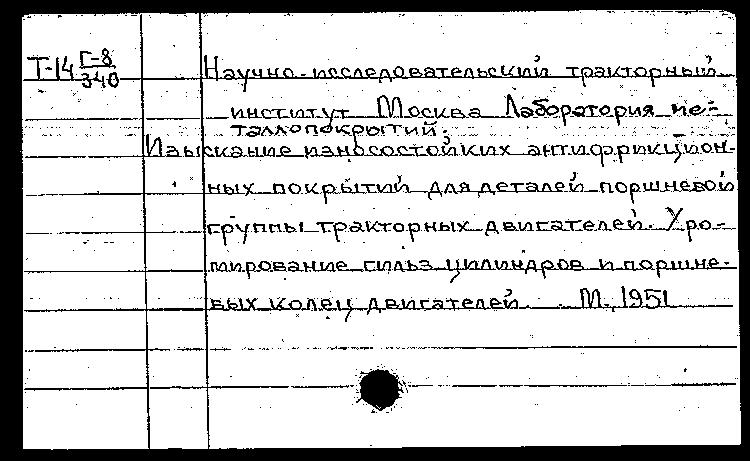 Т-14 Г-8/340
Научно-исследовательский тракторный
институт Москва Лаборатория ме-
таллопокрытий.
Изыскание износостойких антифрикцион-
ных покрытий для деталей поршневой
группы тракторных двигателей. Хро-
мирование гильз цилиндров и поршне-
вых колец двигателей. М., 1951